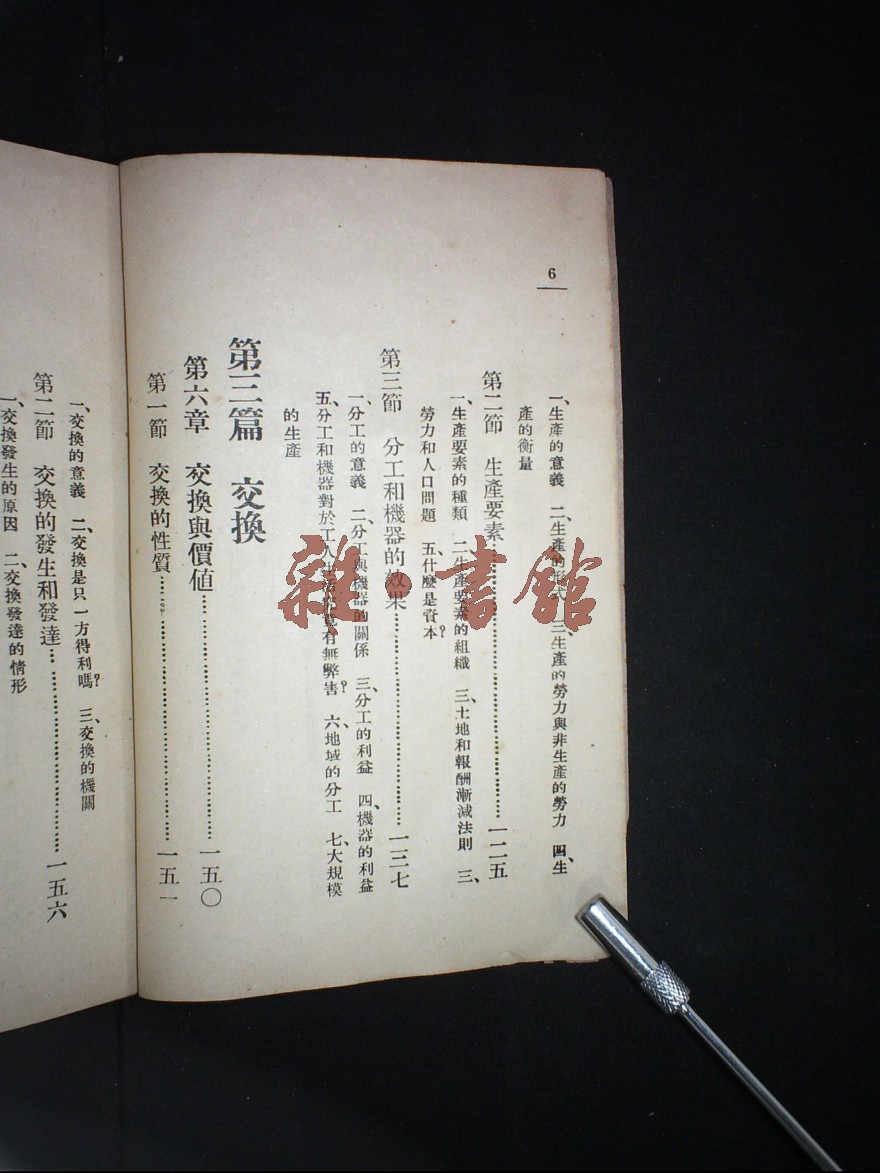 6
一、生產的意義　二、生產的形式　三、生產的勞力與非生產的勞力　四、生
產的衡量
第二節　生產要素……………………一二五
一、生產要素的種類　二、生產要素的組織　三、土地和報酬漸減法則　三、
勞力和人口問題　五、什麼是資本？
第三節　分工和機器的效果……………………一三七
一、分工的意義　二、分工與機器的關係　三、分工的利益　四、機器的利益
五、分工和機器對於工人生活 有無弊害？　六、地域的分工　七、大規模
的生產
第三篇　交換
第六章　交換與價值……………………一五〇
第一節　交換的性質……………………一五一
一、交換的意義　二、交換是只一方得利嗎？　三、交換的機關
第二節　交換的發生和發達……………………一五六
一、交換發生的原因　二、交換發達的情形
雜·書館